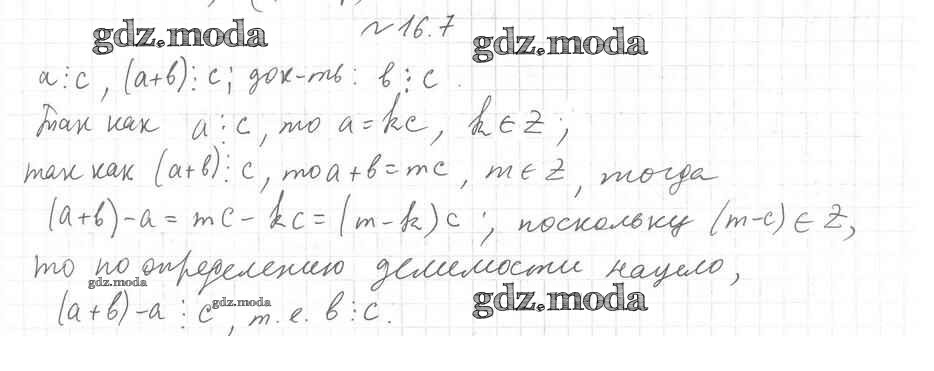 gdz.moda
№16.7
gdz.moda
a⋮c, (a+b)⋮c; док-ть: b⋮c.
Так как a⋮c, то a=kc, k∈Z;
так как (a+b)⋮c, то a+b=mc, m∈Z, тогда
(a+b)-a=mc-kc=(m-k)c; поскольку (m-c)∈Z,
то по определению делимости нацело,
gdz.moda
(a+b)-a⋮c, т.е. b⋮c.
gdz.moda
gdz.moda